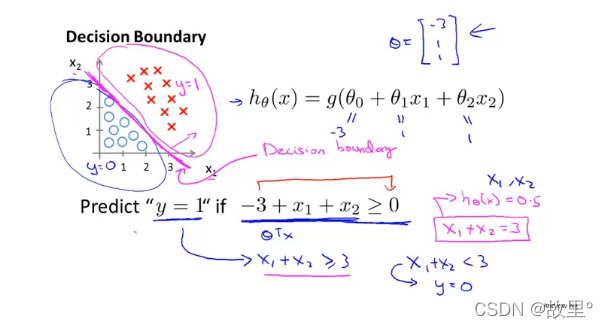 Decision Boundary
θ = [-3 1 1]
x₂
y=1
3
2
1
1 2 3 x₁
y=0
hθ(x) = g(θ₀ + θ₁x₁ + θ₂x₂)
-3 1 1
Decision boundary
Predict “y = 1“ if -3 + x₁ + x₂ ≥ 0
θᵀx
x₁ + x₂ ≥ 3
x₁, x₂
hθ(x) = 0.5
x₁ + x₂ = 3
x₁ + x₂ < 3
y = 0
CSDN @故里°